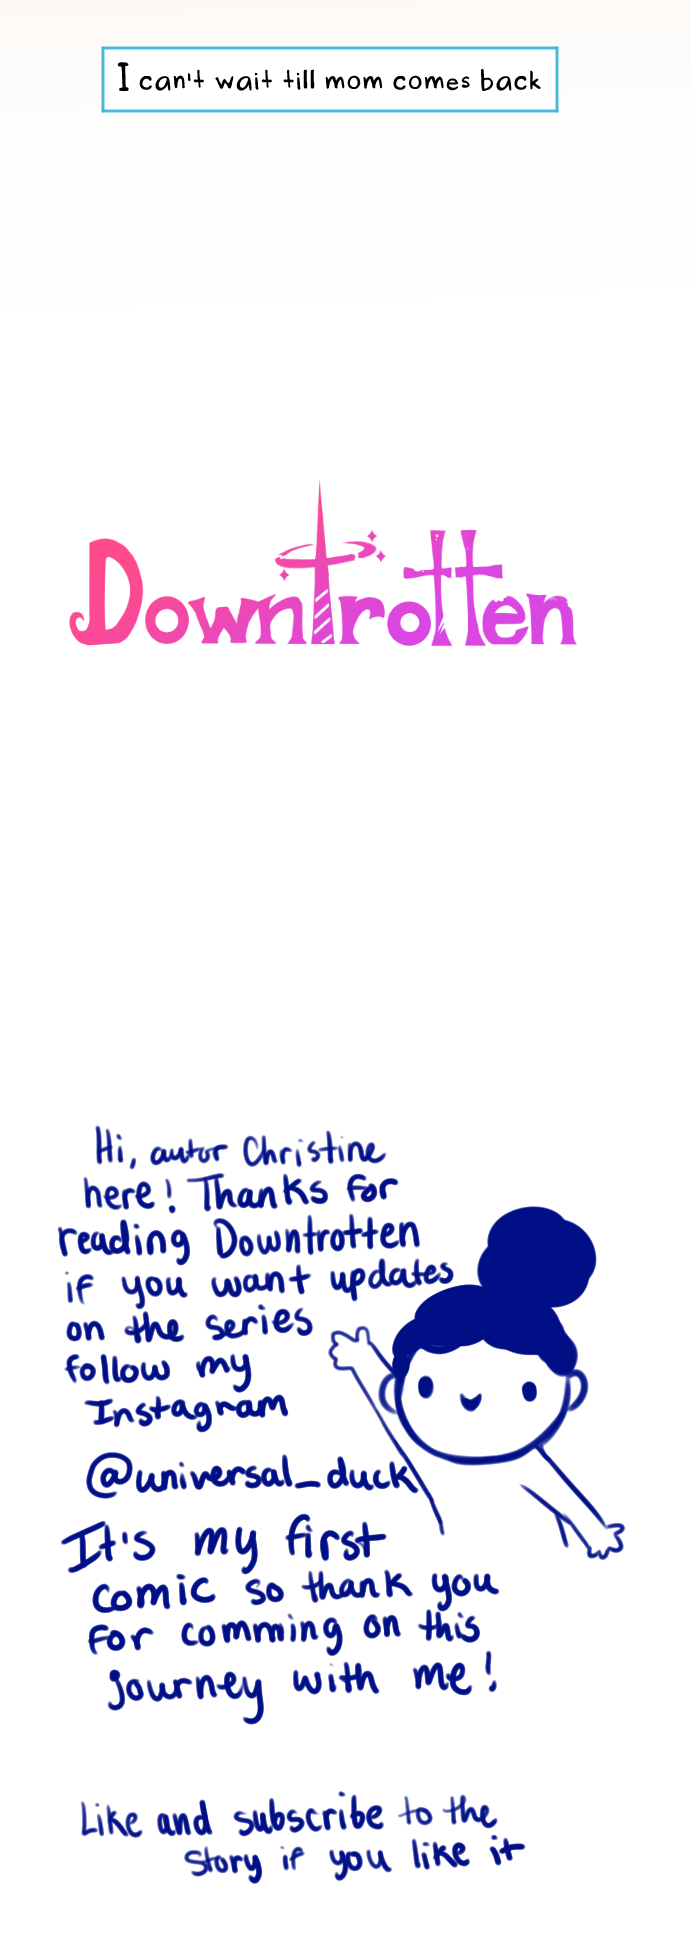 I can't wait till mom comes back
Downtrotten
Hi, autor Christine
here! Thanks for
reading Downtrotten
if you want updates
on the series
follow my
Instagram
@universal_duck
It's my first
comic so thank you
for comming on this
journey with me!
Like and subscribe to the
Story if you like it